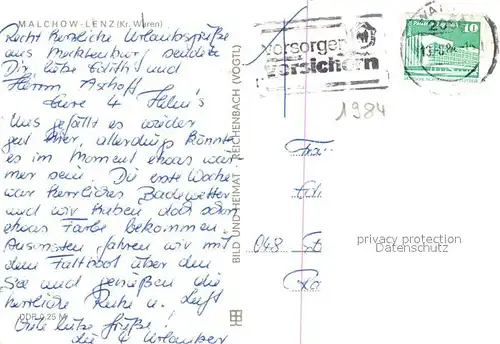 MALCHOW-LENZ (Kr. Waren)
Recht herzliche Urlaubsgrüße
aus Mecklenburg sendet
Dir, liebe Edith und
Herrn Ashoff
Eure 4 Helm's
Uns gefällt es wieder
gut hier, allerdings könnte
es im Moment etwas wär
mer sein. Die erste Woche
war herrliches Badewetter
und wir haben doch schon
etwas Farbe bekommen.
Ansonsten fahren wir mit
dem Faltboot über den
See und genießen die
herrliche Ruhe u. Luft
Viele liebe Grüße!
die 4 Urlauber
DDR 0,25 M
BILD UND HEIMAT · REICHENBACH (VOGTL)
vorsorgen
versichern
10
1984
048
privacy protection
Datenschutz